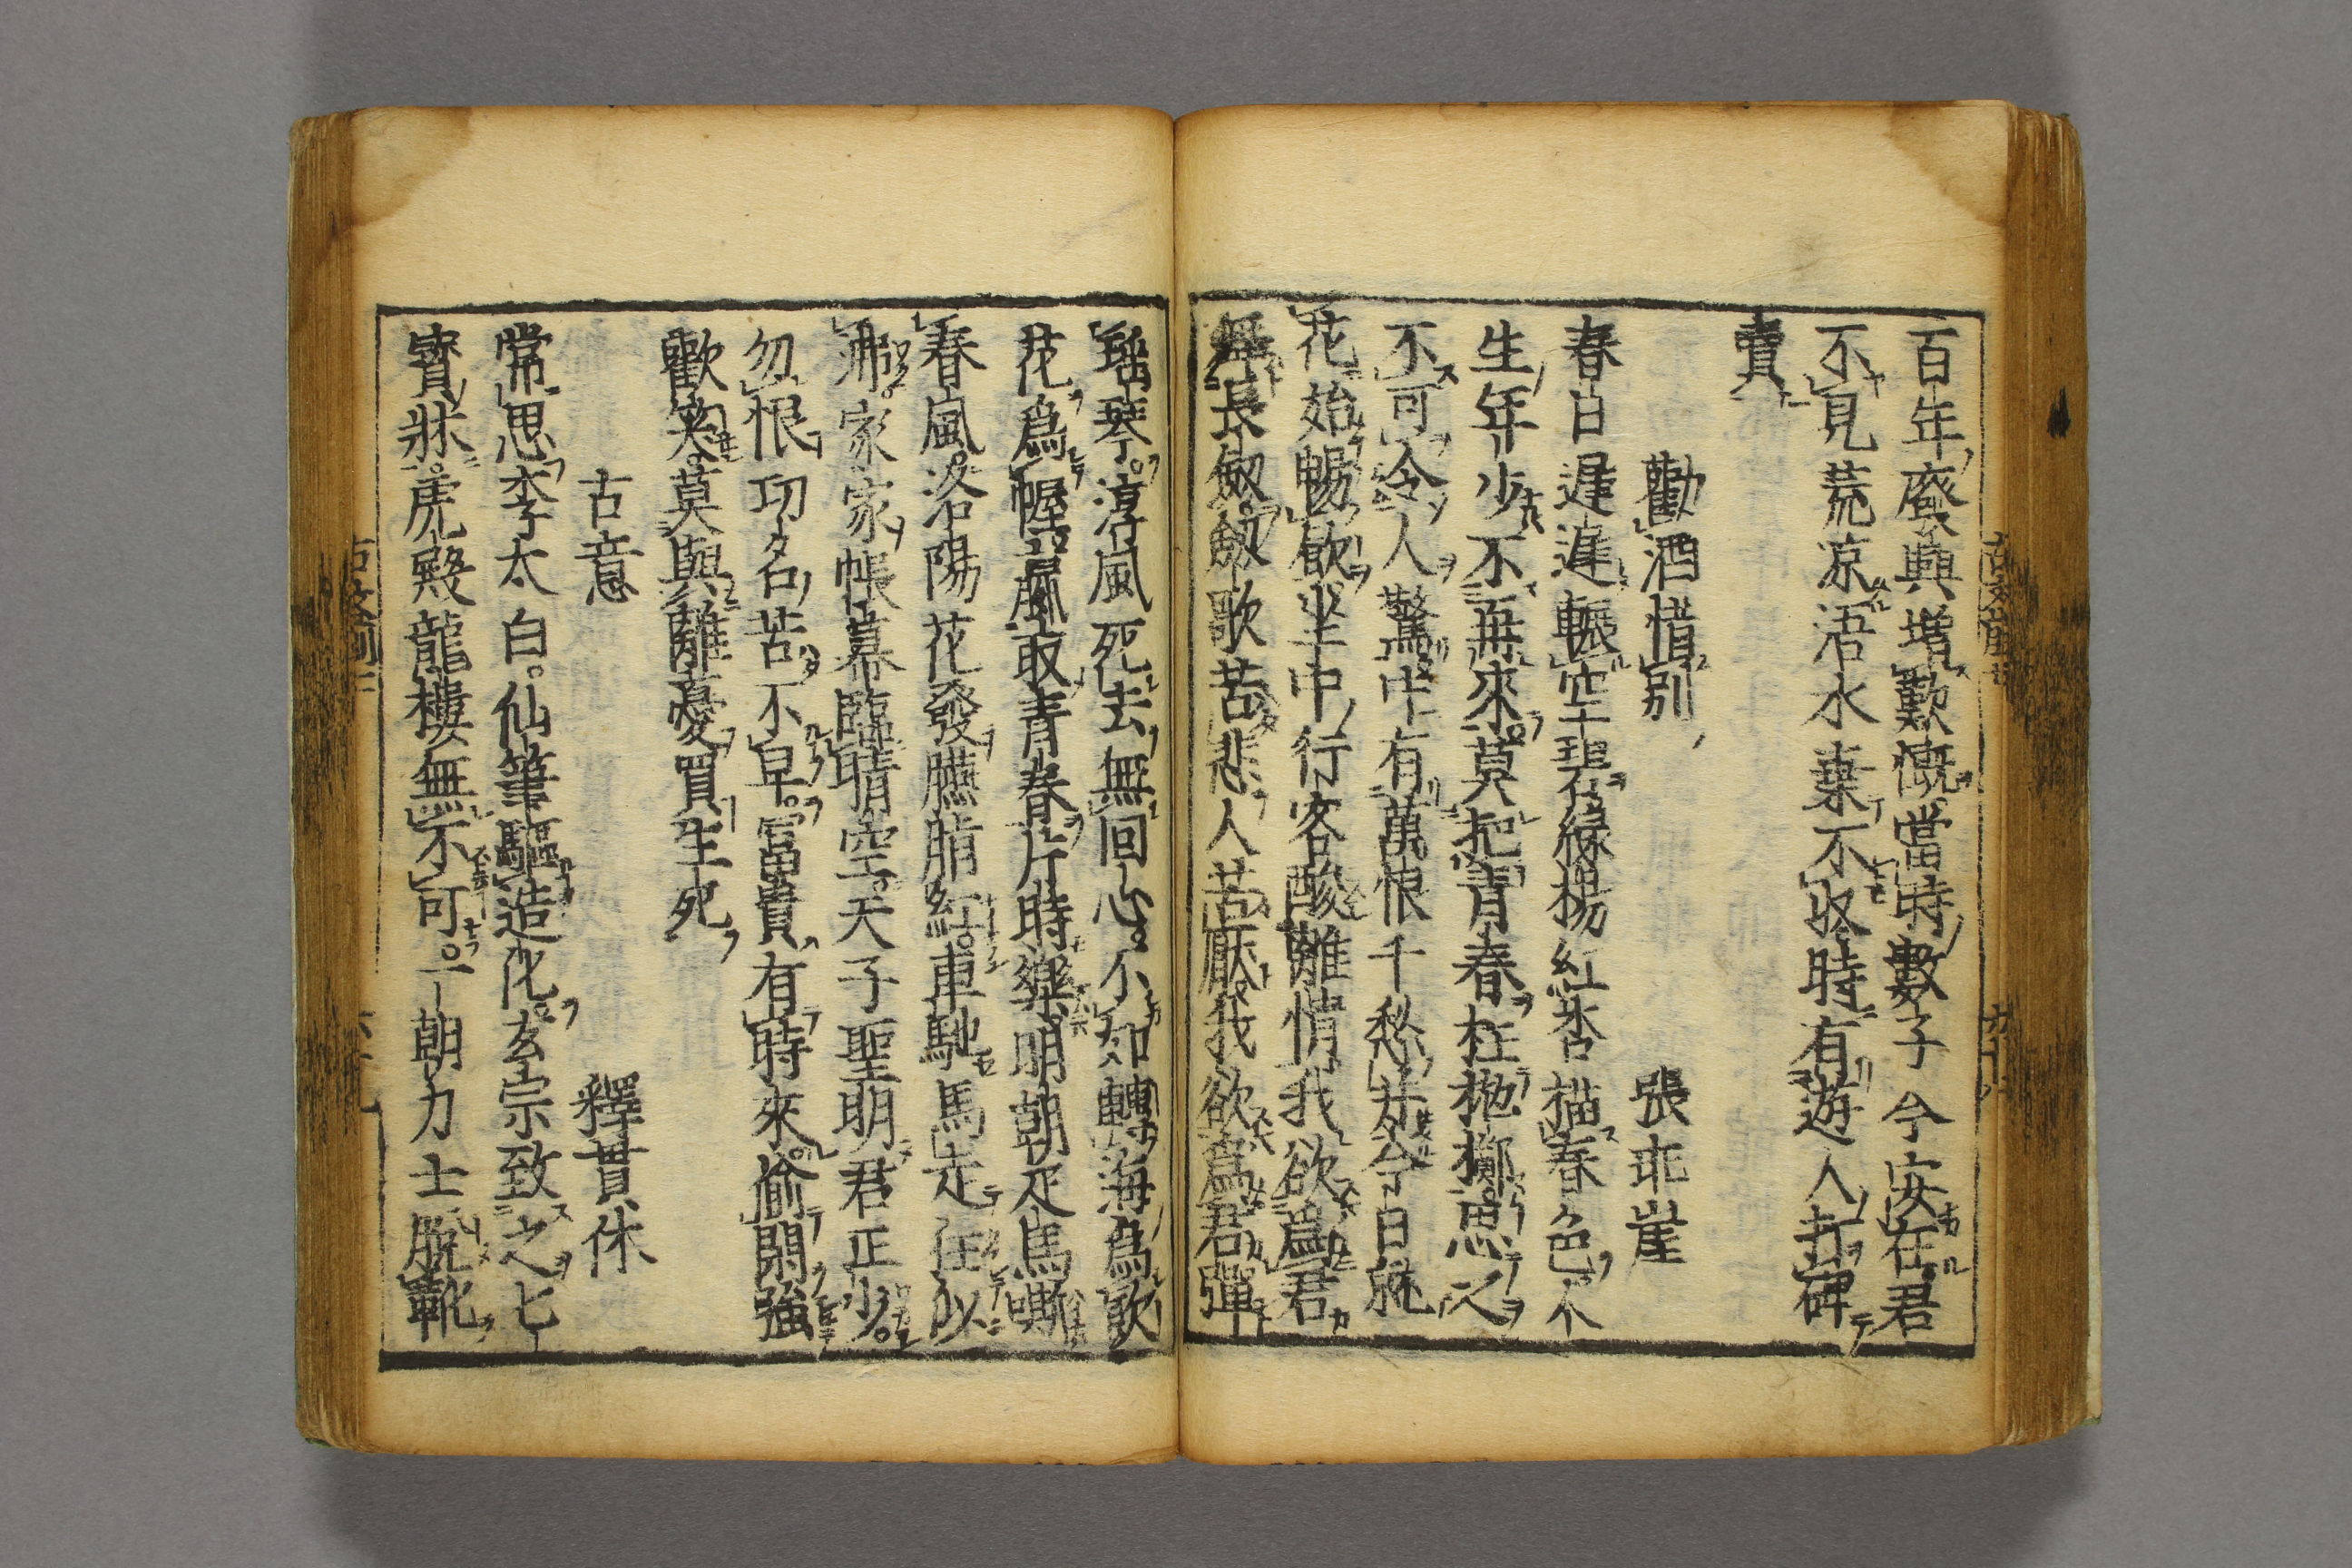 百年廢興增歎慨當時數子今安在君
不見荒凉浯水棄不收時有遊人打碑
賣
勸酒惜别 張乖崖
春日遲遲輾空碧綠楊紅杏描春色人
生年少不再來莫把青春枉抛擲思之
不可令人驚中有萬恨千愁并今日就
花始暢飲坐中行客酸離情我欲爲君
舞長劒劒歌苦悲人苦厭我欲爲君彈
瑤琴淳風死去無回心不如轉海爲飲
花爲幄贏取青春片時樂明朝疋馬嘶
春風洛陽花發臙脂紅車馳馬走狂似
沸家家帳幕臨晴空天子聖明君正少
勿恨功名苦不早富貴有時來偷閑強
歡笑莫與離憂買生死
古意 釋貫休
常思李太白仙筆驅造化玄宗致之七
寳牀虎殿龍樓無不可一朝力士脫靴